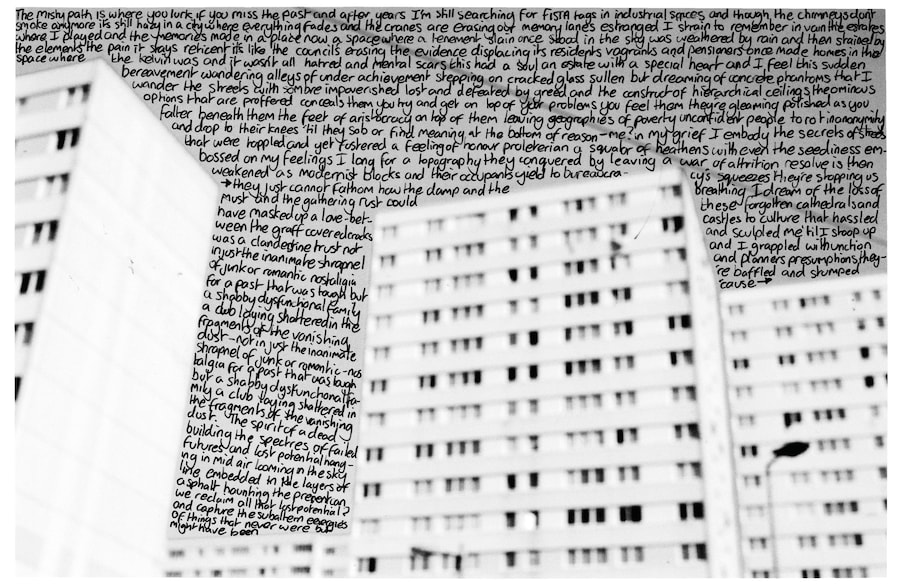 The misty path is where you lurk if you miss the past and after years I'm still searching for FISTA tags in industrial spaces and though the chimneys don't
smoke anymore its still hazy in a city where everything fades and the cranes are erasing our memory lanes estranged I strain to remember in vain the estates
where I played and the memories made in a place now a space where a tenement slain once stood in the sky was weathered by rain and then stained by
the elements the pain it stays reticent its like the councils erasing the evidence displacing its residents vagrants and pensioners once made homes in the
space where the kelvin was and it wasn't all hatred and mental scars this had a soul an estate with a special heart and I feel this sudden
bereavement wandering alleys of under achievement stepping on cracked glass sullen but dreaming of concrete phantoms that I
wander the streets with sombre impoverished lost and defeated by greed and the construct of hierarchical ceilings the ominous
options that are proffered conceals them you try and get on top of your problems you feel them they're gleaming polished as you
falter beneath them the feet of aristocracy on top of them leaving geographies of poverty unconfident people to rot in anonymity
and drop to their knees 'til they sob or find meaning at the bottom of reason - me in my grief I embody the secrets of
that were toppled and yet fostered a feeling of honour proleterian a squator of heathens with even the seediness em-
bossed on my feelings I long for a topography they conquered by leaving a war of attrition resolve is then
weakened as modernist blocks and their occupants yield to bureaucra-
cy's squeezes they're stopping us
breathing I dream of the loss of
these forgotten cathedrals and
castles to culture that hassled
and sculpted me 'til I stoop up
and I grappled with unction
and planners presumptions they-
're baffled and stumped
'cause →
→ they just cannot fathom how the damp and the
must and the gathering rust could
have masked up a love bet-
ween the graff covered cracks
was a clandestine trust not
in just the inanimate shrapnel
of junk or romantic nostalgia
for a past that was tough but
a shabby dysfunctional family
a club lying shattered in the
fragments of the vanishing
dust - not in just the inanimate
shrapnel of junk or romantic - nos
talgia for a past that was tough
but a shabby dysfunctional fa-
mily a club laying shattered in
the fragments of the vanishing
dust. The spirit of a dead
building the spectres of failed
futures and lost potential hang-
ing in mid air looming in the sky
line embedded in the layers of
asphalt haunting the present can
we reclaim all that lost potential?
and capture the subaltern energies
of things that never were but
might have been